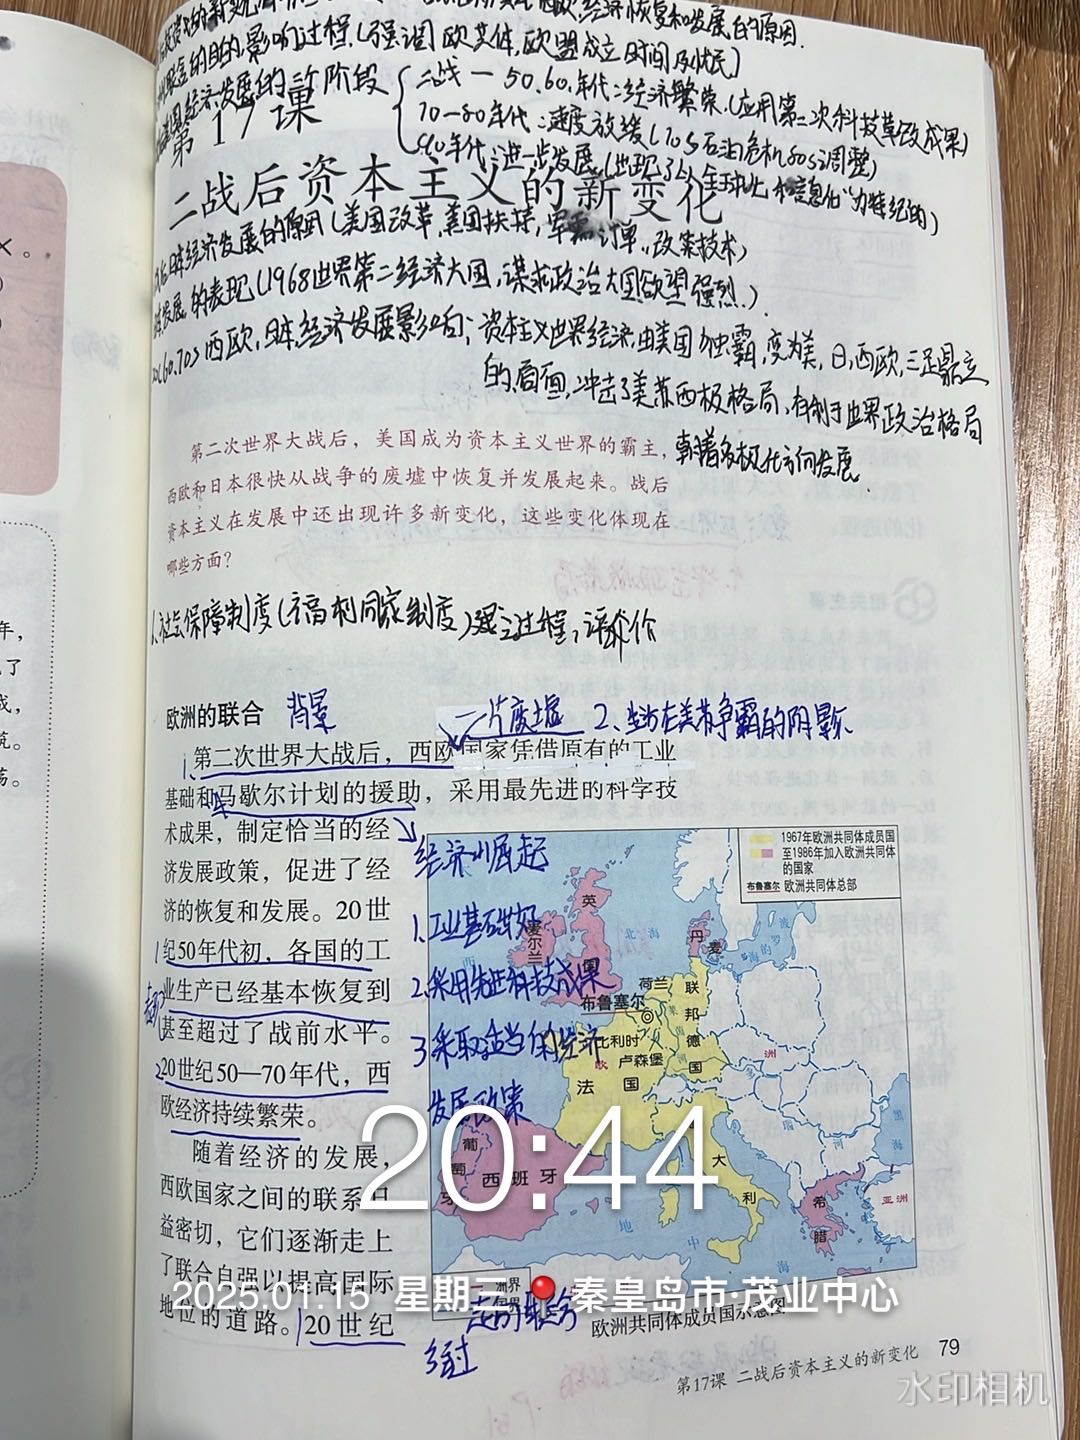 经济恢复和发展的原因.
的目的影响过程.(强调欧共体,欧盟成立时间
经济发展的阶段
二战一50.60.年代:经济繁荣.(应用第三次科技革命成果)
70-80年代:速度放缓(70s石油危机80s调整)
90年代:进一步发展.(出现了以全球化和信息化"为特征的)
第17课
二战后资本主义的新变化
经济发展的原因(美国改革,美国扶持,军需订单.,政策技术)
发展,的表现(1968世界第二经济大国,谋求政治大国欲望强烈.)
60.70s西欧,日本,经济发展影响:资本主义世界经济由美国独霸,变为美,日,西欧,三足鼎立
的局面,冲击了美苏两极格局,有利于世界政治格局
朝着多极化方向发展.
第二次世界大战后,美国成为资本主义世界的霸主,
西欧和日本很快从战争的废墟中恢复并发展起来。战后
资本主义在发展中还出现许多新变化,这些变化体现在
哪些方面?
1.社会保障制度(福利国家制度)建立过程,评价
欧洲的联合 背景
一片废墟 2、坐在美苏争霸的阴影
1、第二次世界大战后,西欧国家凭借原有的工业
基础和马歇尔计划的援助,采用最先进的科学技
术成果,制定恰当的经
济发展政策,促进了经
济的恢复和发展。20世
纪50年代初,各国的工
业生产已经基本恢复到
甚至超过了战前水平。
20世纪50—70年代,西
欧经济持续繁荣。
随着经济的发展,
西欧国家之间的联系日
益密切,它们逐渐走上
了联合自强以提高国际
地位的道路。20世纪
经济崛起
1、工业基础好
2、采用先进科技成果
3采取适当的经济
发展政策
1967年欧洲共同体成员国
至1986年加入欧洲共同体
的国家
布鲁塞尔 欧洲共同体总部
英
国
爱尔兰
北海
丹麦
波罗的海
荷兰
联邦德国
布鲁塞尔
比利时
卢森堡
欧
洲
法国
葡萄牙
西班牙
意大利
希腊
黑海
亚洲
地中海
洲界
国界
欧洲共同体成员国示意图
20:44
2025.01.15 星期三 秦皇岛市·茂业中心
走向联合
经过
第17课 二战后资本主义的新变化 79
水印相机